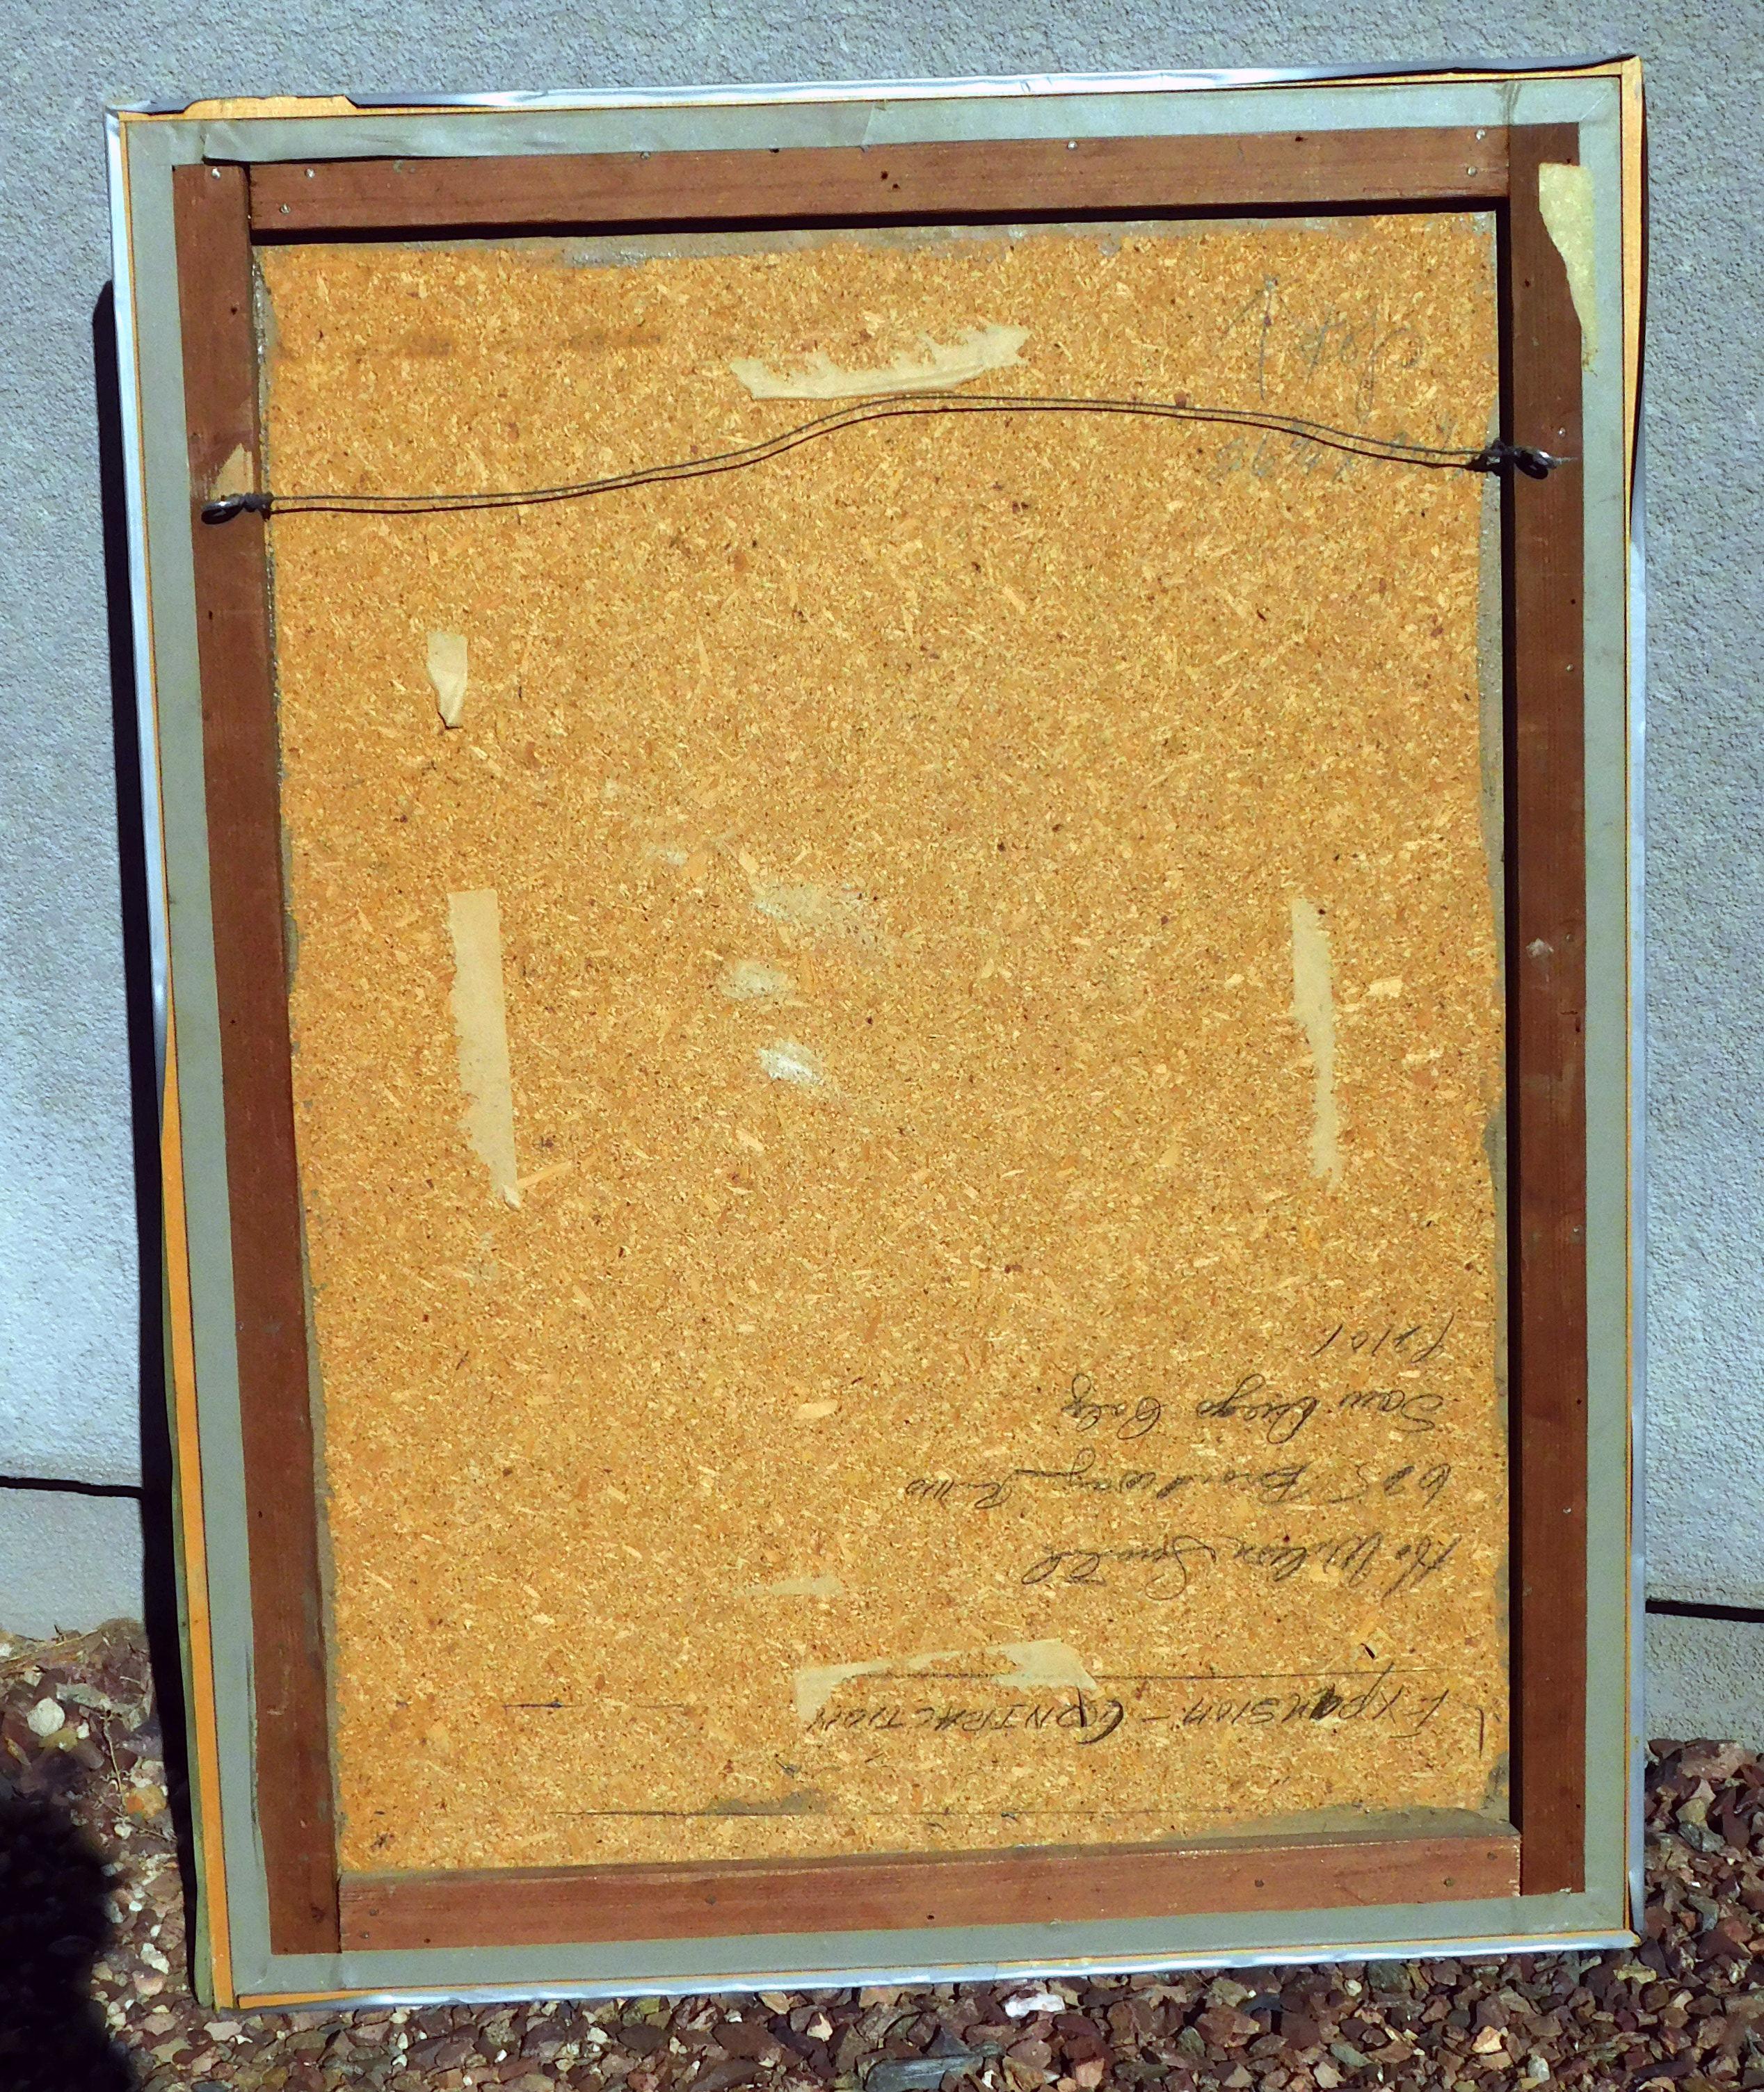 top
EXPANSION - CONTRACTION
Wilson Smith
625 Broadway
San Diego Calif
92101